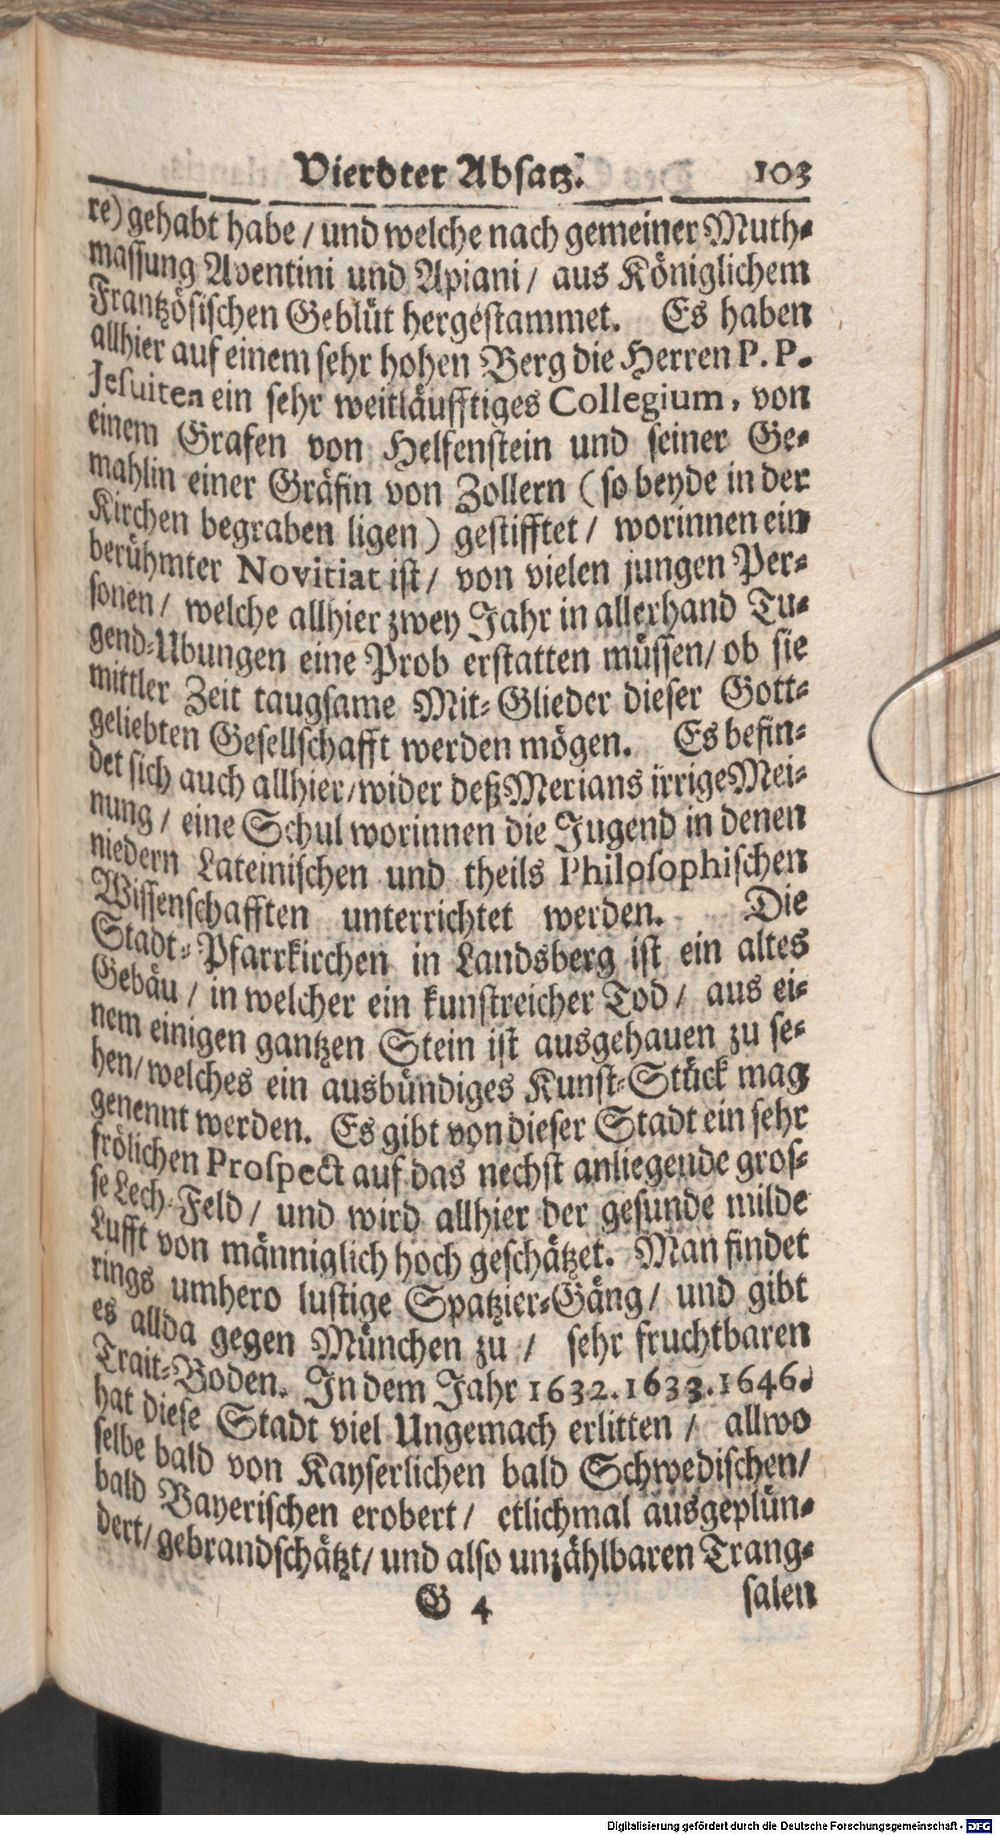 Vierdter Absatz. 103
re) gehabt habe / und welche nach gemeiner Muth-
massung Aventini und Apiani / aus Königlichem
Frantzösischen Geblüt hergestammet. Es haben
allhier auf einem sehr hohen Berg die Herren P. P.
Jesuiten ein sehr weitläufftiges Collegium, von
einem Grafen von Helfenstein und seiner Ge-
mahlin einer Gräfin von Zollern (so beyde in der
Kirchen begraben ligen) gestifftet / worinnen ein
berühmter Novitiat ist / von vielen jungen Per-
sonen / welche allhier zwey Jahr in allerhand Tu-
gend-Ubungen eine Prob erstatten müssen / ob sie
mittler Zeit taugsame Mit-Glieder dieser Gott-
geliebten Gesellschafft werden mögen. Es befin-
det sich auch allhier / wider deß Merians irrige Mei-
nung / eine Schul worinnen die Jugend in denen
niedern Lateinischen und theils Philosophischen
Wissenschafften unterrichtet werden. Die
Stadt-Pfarrkirchen in Landsberg ist ein altes
Gebäu / in welcher ein kunstreicher Tod / aus ei-
nem einigen gantzen Stein ist ausgehauen zu se-
hen / welches ein ausbündiges Kunst-Stück mag
genennt werden. Es gibt von dieser Stadt ein sehr
frölichen Prospect auf das nechst anliegende gros-
se Lech-Feld / und wird allhier der gesunde milde
Lufft von männiglich hoch geschätzet. Man findet
rings umhero lustige Spatzier-Gäng / und gibt
es allda gegen München zu / sehr fruchtbaren
Trait-Boden. In dem Jahr 1632. 1633. 1646.
hat diese Stadt viel Ungemach erlitten / allwo
selbe bald von Kayserlichen bald Schwedischen /
bald Bayerischen erobert / etlichmal ausgeplün-
dert / gebrandschätzt / und also unzählbaren Trang-
G 4 salen
Digitalisierung gefördert durch die Deutsche Forschungsgemeinschaft - DFG